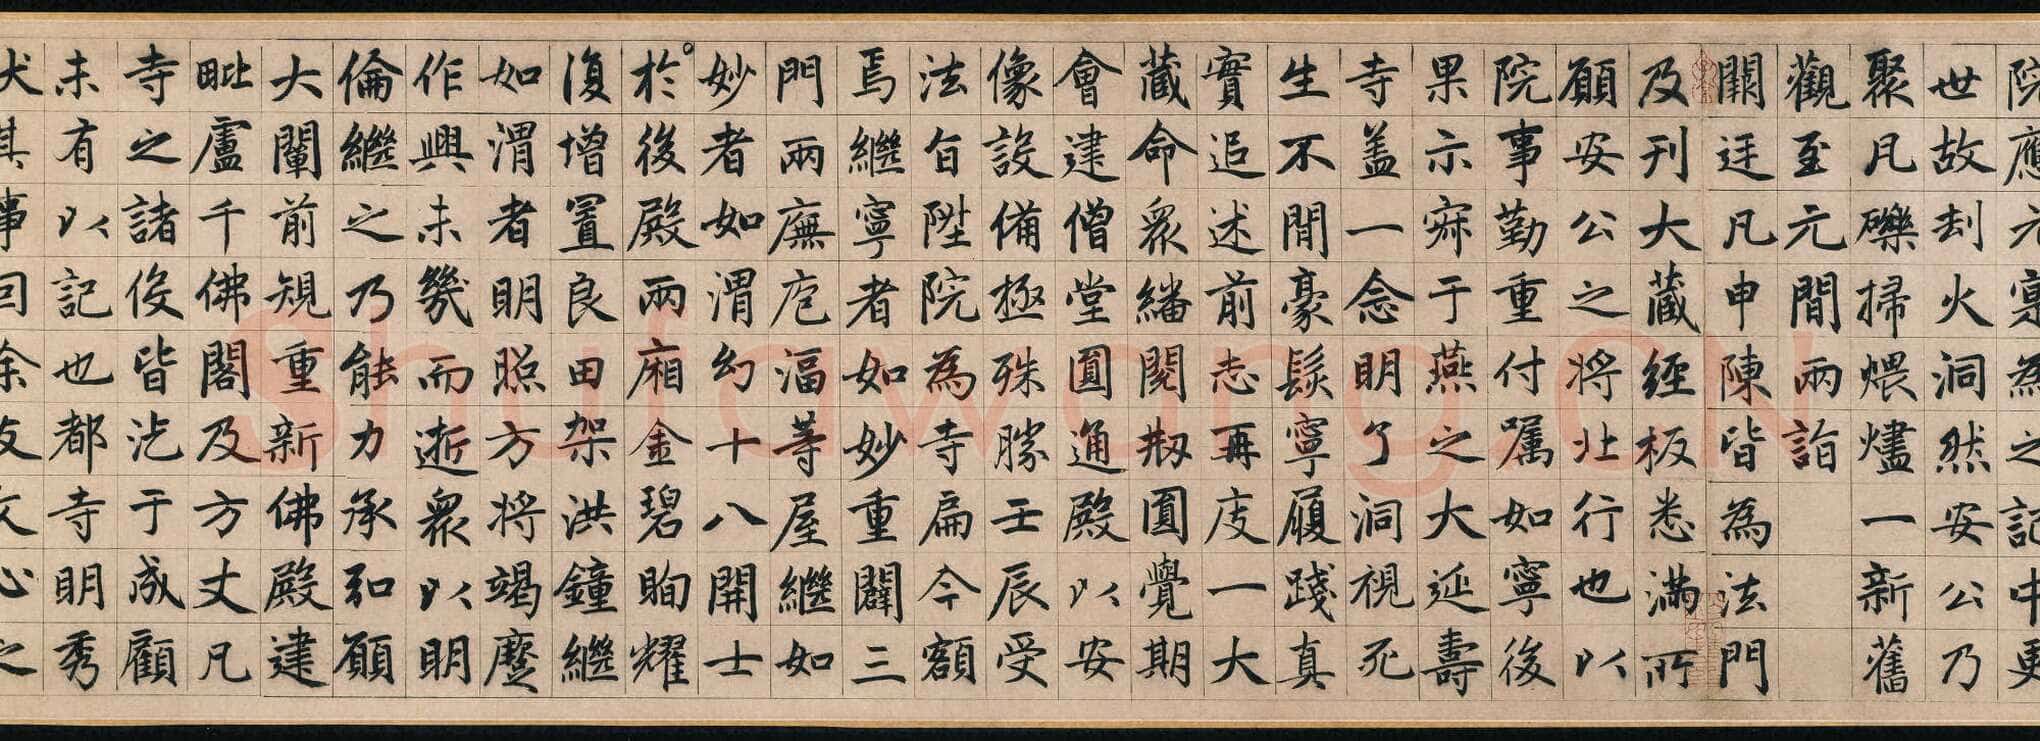 院應元寔為之記中更
世故刦火洞然安公乃
聚凡礫掃煨燼一新舊
觀至元間兩詣
闕廷凡申陳皆為法門
及刊大藏經板悉滿所
願安公之將北行也以
院事勤重付嘱如寧後
果示寂于燕之大延壽
寺盖一念明了洞視死
生不間豪髮寧履踐真
實追述前志再度一大
藏命衆繙閱刱圓覺期
會建僧堂圓通殿以安
像設備極殊勝壬辰受
法旨陞院為寺扁今額
焉繼寧者如妙重闢三
門兩廡庖湢等屋繼如
妙者如渭幻十八開士
於後殿兩廂金碧眴耀
復增置良田架洪鐘繼
如渭者明照方將竭蹙
作興未幾而逝衆以明
倫繼之乃能力承弘願
大闡前規重新佛殿建
毗盧千佛閣及方丈凡
寺之諸役皆汔于成顧
未有以記也都寺明秀
狀其事囙余友文心之
Shufawang.CN